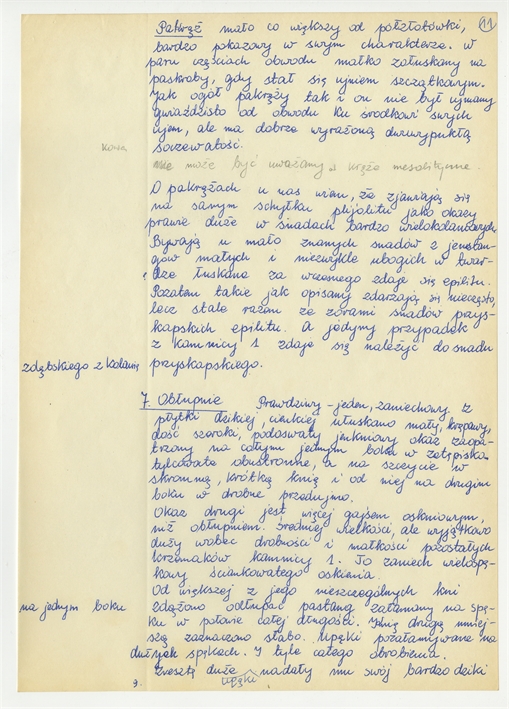 11
Pakrąż mało co większy od półzłabówki,
bardzo pokazowy w swym charakterze. W
paru częściach obwodu małko załuskany na
paskroby, gdy stał się ujniem szczątkowym.
Jak ogół pakrąży tak i on nie był ujmany
gwiaździsto od obwodu ku środkowi swych
ujem, ale ma dobrze wyrażoną dwuwypukłą
soczewatość.
nie może być uważany kręże mezolityczne.
O pakrążach u nas wiem, że zjawiają się
na samym schyłku plejolitu jako okazy
prawie duże w snadach bardzo wielokolanowych
Bywają u mało znanych snadów z
gów małych i niezwykle ubogich w twar-
dze łuskana za wczesnego zdaje się epilitu.
Pozatem takie jak opisany zdarzają się nieczęsto,
lecz stale razem ze zorami snadów przys-
kapskich epilitu. A jedyny przypadek
z Kamnicy 1 zdaje się należyć do snadu
zdębskiego z kolanej przyskapskiego.
7. Obłupnie Prawdziwy - jeden, zaniechowy. Z
płytki dzikiej, cienkiej ułuskano mały, krępawy,
dość szeroki, podosowaty jenkniowy okaz zaopa-
trzony na całym jednym boku w zatępiska
tylcowate obustronne, a na szczycie w
skromną, krótką knię i od niej na drugim
boku w drobne przedujmo.
Okaz drugi jest więcej gajsem oskniowym,
niż obłupniem. Średniej wielkości, ale wyjątkowo
duży wobec drobności i małkości pozostałych
krzemaków Kamnicy 1. To zaniech wielospę-
kowy ściankowatego oskienia.
Od większej z jego nieszczególnych kni
zdążono odłupać pastang załamany na spę-
na jednym boku ku w połowie całej długości. Knię drugą mniej-
szą zaznaczono słabo. Łupęki pozałamywane na
dużych spękach. I tyle całego obrobienia.
Zresztą duże łupęki nadały mu swój bardzo dziki
9.